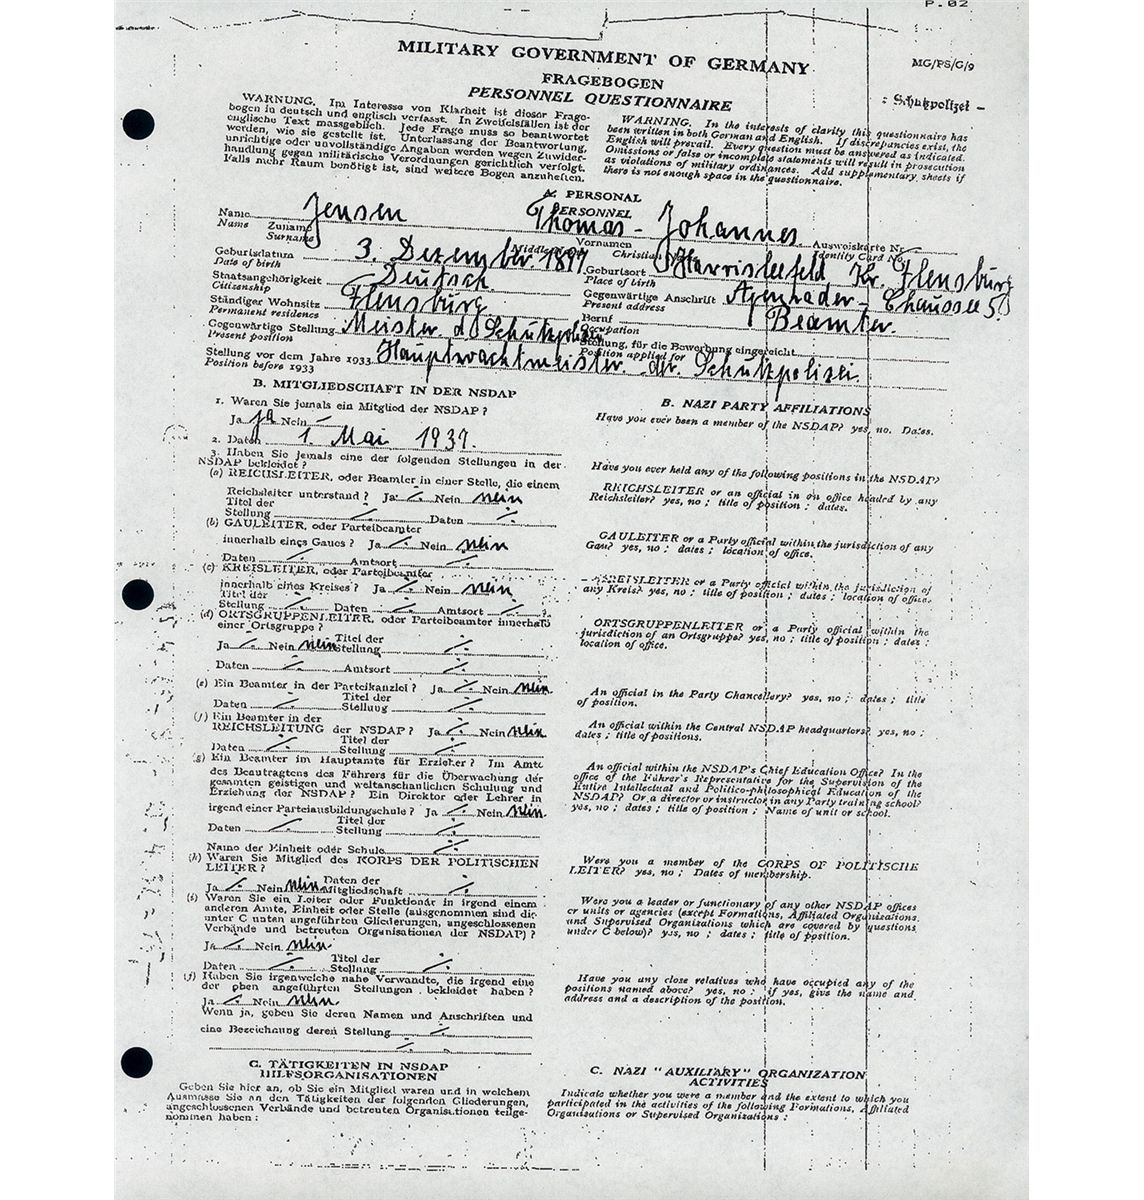 P. 02
MILITARY GOVERNMENT OF GERMANY
MG/PS/G/9
FRAGEBOGEN
PERSONNEL QUESTIONNAIRE
: Schutzpolizei -
WARNUNG. Im Interesse von Klarheit ist dieser Frage-
bogen in deutsch und englisch verfasst. In Zweifelsfällen ist der
englische Text massgeblich. Jede Frage muss so beantwortet
werden, wie sie gestellt ist. Unterlassung der Beantwortung,
unrichtige oder unvollständige Angaben werden wegen Zuwider-
handlung gegen militärische Verordnungen gerichtlich verfolgt.
Falls mehr Raum benötigt ist, sind weitere Bogen anzuheften.
WARNING. In the interests of clarity this questionnaire has
been written in both German and English. If discrepancies exist, the
English will prevail. Every question must be answered as indicated.
Omissions or false or incomplete statements will result in prosecution
as violations of military ordinances. Add supplementary sheets if
there is not enough space in the questionnaire.
A. PERSONAL
PERSONNEL
Name Jensen Thomas - Johannes Ausweiskarte Nr.
Name Zuname Vornamen Identity Card No.
Surname Middle Christian
Geburtsdatum 3. Dezember 1897 Geburtsort Harrisleefeld Kr. Flensburg
Date of birth Place of birth
Staatsangehörigkeit Deutsch. Gegenwärtige Anschrift Apenrader - Chaussee 50
Citizenship Present address
Ständiger Wohnsitz Flensburg Beruf Beamter.
Permanent residence Occupation
Gegenwärtige Stellung Meister d. Schutzpolizei Stellung, für die Bewerbung eingereicht
Present position Position applied for
Stellung vor dem Jahre 1933 Hauptwachtmeister der Schutzpolizei.
Position before 1933
B. MITGLIEDSCHAFT IN DER NSDAP
1. Waren Sie jemals ein Mitglied der NSDAP ?
Ja ja Nein
2. Daten 1. Mai 1937.
3. Haben Sie jemals eine der folgenden Stellungen in der
NSDAP bekleidet ?
(a) REICHSLEITER, oder Beamter in einer Stelle, die einem
Reichsleiter unterstand ? Ja ·/. Nein nein
Titel der
Stellung ·/. Daten ·/.
(b) GAULEITER, oder Parteibeamter
innerhalb eines Gaues ? Ja ·/. Nein nein
Daten ·/. Amtsort ·/.
(c) KREISLEITER, oder Parteibeamter
innerhalb eines Kreises ? Ja ·/. Nein nein
Titel der
Stellung ·/. Daten ·/. Amtsort ·/. ?
(d) ORTSGRUPPENLEITER, oder Parteibeamter innerhalb
einer Ortsgruppe ?
Titel der
Ja ·/. Nein nein Stellung ·/.
Daten ·/. Amtsort ·/.
(e) Ein Beamter in der Parteikanzlei ? Ja ·/. Nein nein
Titel der
Daten ·/. Stellung ·/.
(f) Ein Beamter in der
REICHSLEITUNG der NSDAP ? Ja ·/. Nein nein
Titel der
Daten ·/. Stellung ·/.
(g) Ein Beamter im Hauptamte für Erzieher ? Im Amte
des Beautragtens des Führers für die Überwachung der
gesamten geistigen und weltanschanlichen Schulung und
Erziehung der NSDAP ? Ein Direktor oder Lehrer in
irgend einer Parteiausbildungschule ? Ja ·/. Nein nein.
Titel der
Daten ·/. Stellung ·/.
Name der Einheit oder Schule ·/.
(h) Waren Sie Mitglied des KORPS DER POLITISCHEN
LEITER ?
Daten der
Ja ·/. Nein nein Mitgliedschaft ·/.
(i) Waren Sie ein Leiter oder Funktionär in irgend einem
anderen Amte, Einheit oder Stelle (ausgenommen sind die
unter C unten angeführten Gliederungen, angeschlossenen
Verbände und betreuten Organisationen der NSDAP) ?
Ja ·/. Nein nein
Titel der
Daten ·/. Stellung ·/.
(j) Haben Sie irgenwelche nahe Verwandte, die irgend eine
der oben angeführten Stellungen bekleidet haben ?
Ja ·/. Nein nein
Wenn ja, geben Sie deren Namen und Anschriften und
eine Bezeichnung deren Stellung ·/.
·/.
C. TÄTIGKEITEN IN NSDAP
HILFSORGANISATIONEN
Geben Sie hier an, ob Sie ein Mitglied waren und in welchem
Ausmasse Sie an den Tätigkeiten der folgenden Gliederungen,
angeschlossenen Verbände und betreuten Organisationen teilge-
nommen haben :
B. NAZI PARTY AFFILIATIONS
Have you ever been a member of the NSDAP? yes, no. Dates.
Have you ever held any of the following positions in the NSDAP?
REICHSLEITER or an official in an office headed by any
Reichsleiter? yes, no ; title of position ; dates.
GAULEITER or a Party official within the jurisdiction of any
Gau? yes, no ; dates ; location of office.
KREISLEITER or a Party official within the jurisdiction of
any Kreis? yes, no ; title of position ; dates ; location of office.
ORTSGRUPPENLEITER or a Party official within the
jurisdiction of an Ortsgruppe? yes, no ; title of position ; dates ;
location of office.
An official in the Party Chancellery? yes, no ; dates ; title
of position.
An official within the Central NSDAP headquarters? yes, no ;
dates ; title of positions.
An official within the NSDAP's Chief Education Office? In the
office of the Führer's Representative for the Supervision of the
Entire Intellectual and Politico-philosophical Education of the
NSDAP? Or a director or instructor in any Party training school?
yes, no ; dates ; title of position ; Name of unit or school.
Were you a member of the CORPS OF POLITISCHE
LEITER? yes, no ; Dates of membership.
Were you a leader or functionary of any other NSDAP offices
or units or agencies (except Formations, Affiliated Organizations
and Supervised Organizations which are covered by questions
under C below)? yes, no ; dates ; title of position.
Have you any close relatives who have occupied any of the
positions named above? yes, no ; if yes, give the name and
address and a description of the position.
C. NAZI "AUXILIARY" ORGANIZATION
ACTIVITIES
Indicate whether you were a member and the extent to which you
participated in the activities of the following Formations, Affiliated
Organisations or Supervised Organizations :